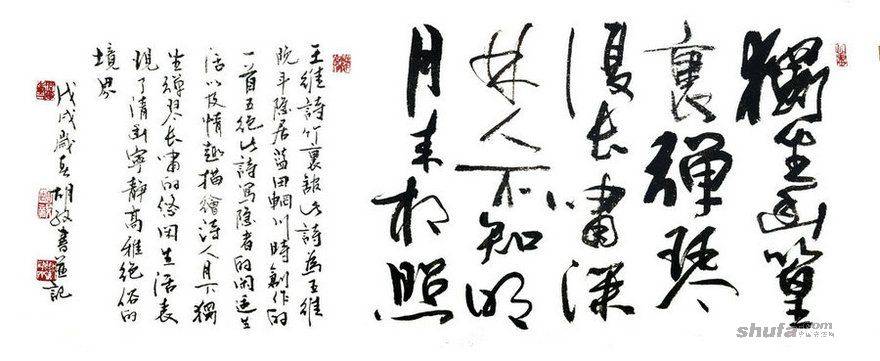 獨坐幽篁
裏彈琴
復長嘯深
林人不知明
月来相照
王維詩竹裏館此詩為王維
晚年隐居蓝田輞川時創作的
一首五绝此詩寫隐者的闲适生
活以及情趣描繪诗人月下獨
坐彈琴长嘯的悠闲生活表
現了清幽寧静高雅绝俗的
境界
戊戌歲春胡書並記
shufa.com